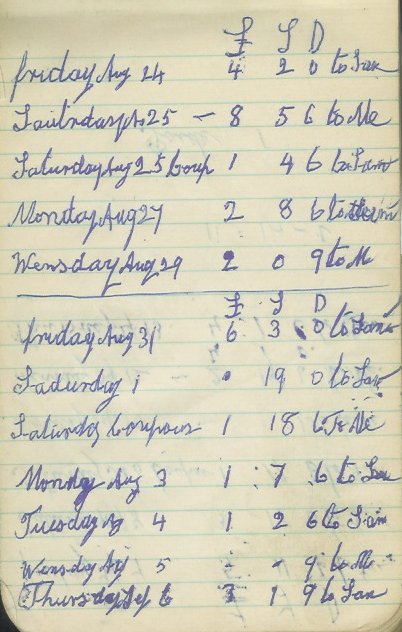 £ S D
friday Aug 24 4 2 0 to Sam
Saturday A 25 - 8 5 6 to Me
Saturday Aug 25 Coup 1 4 6 to Sam
Monday Aug 27 2 8 6 to
Wensday Aug 29 2 0 9 to M
£ S D
friday Aug 31 6 3 0 to Sam
Saturday 1 • 19 0 to Sam
Saturday Coupons 1 18 6 To Me
Monday Aug 3 1 7 6 to Sam
Tuesday Ag 4 1 2 6 to Sam
Wensday Ag 5 - - 9 to M
Thursday Sep 6 1 9 to Sam